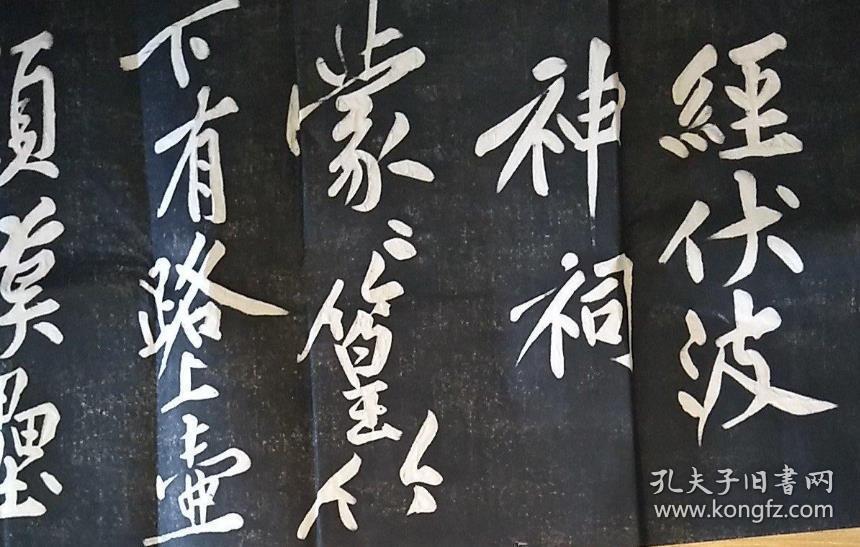 經伏波
神祠
蒙〻篁竹
下有路上壺
頭漢壘
孔夫子旧書网
www.kongfz.com